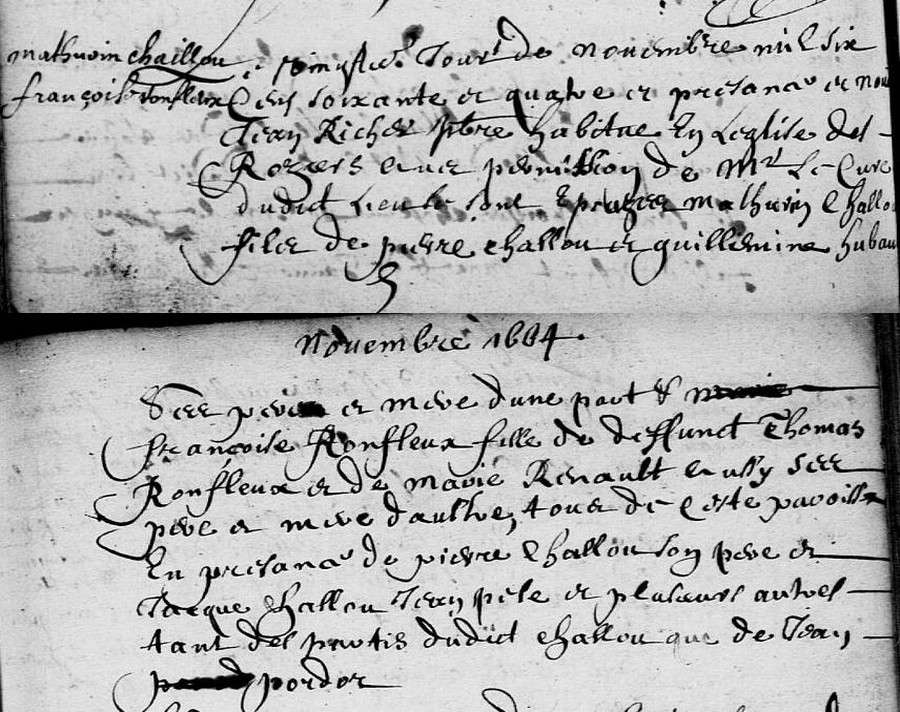 mathurin chaillou
françoise Ronfleux
Le vingtiesme Jour de novembre mil six
Cens soixante et quatre en presance et nou
Jean Richer pbre habitue En Leglise des
Roziers avec permission de Mr Le Cure
dudict Lieu se sont Epousez mathurin Challou
filer de pierre challou et guillemine hubau
Novembre 1664.
Ses pere et mere dune part &
françoise Ronfleux fille de deffunct Thomas
Ronfleux et de marie Renault aussy ses
pere et mere daultre, tous de Ceste paroisse
En presance de pierre Challou son pere et
Jacque Challou Jean pele et plusieurs autres
tant des partis dudict challou que de Jean
pordor